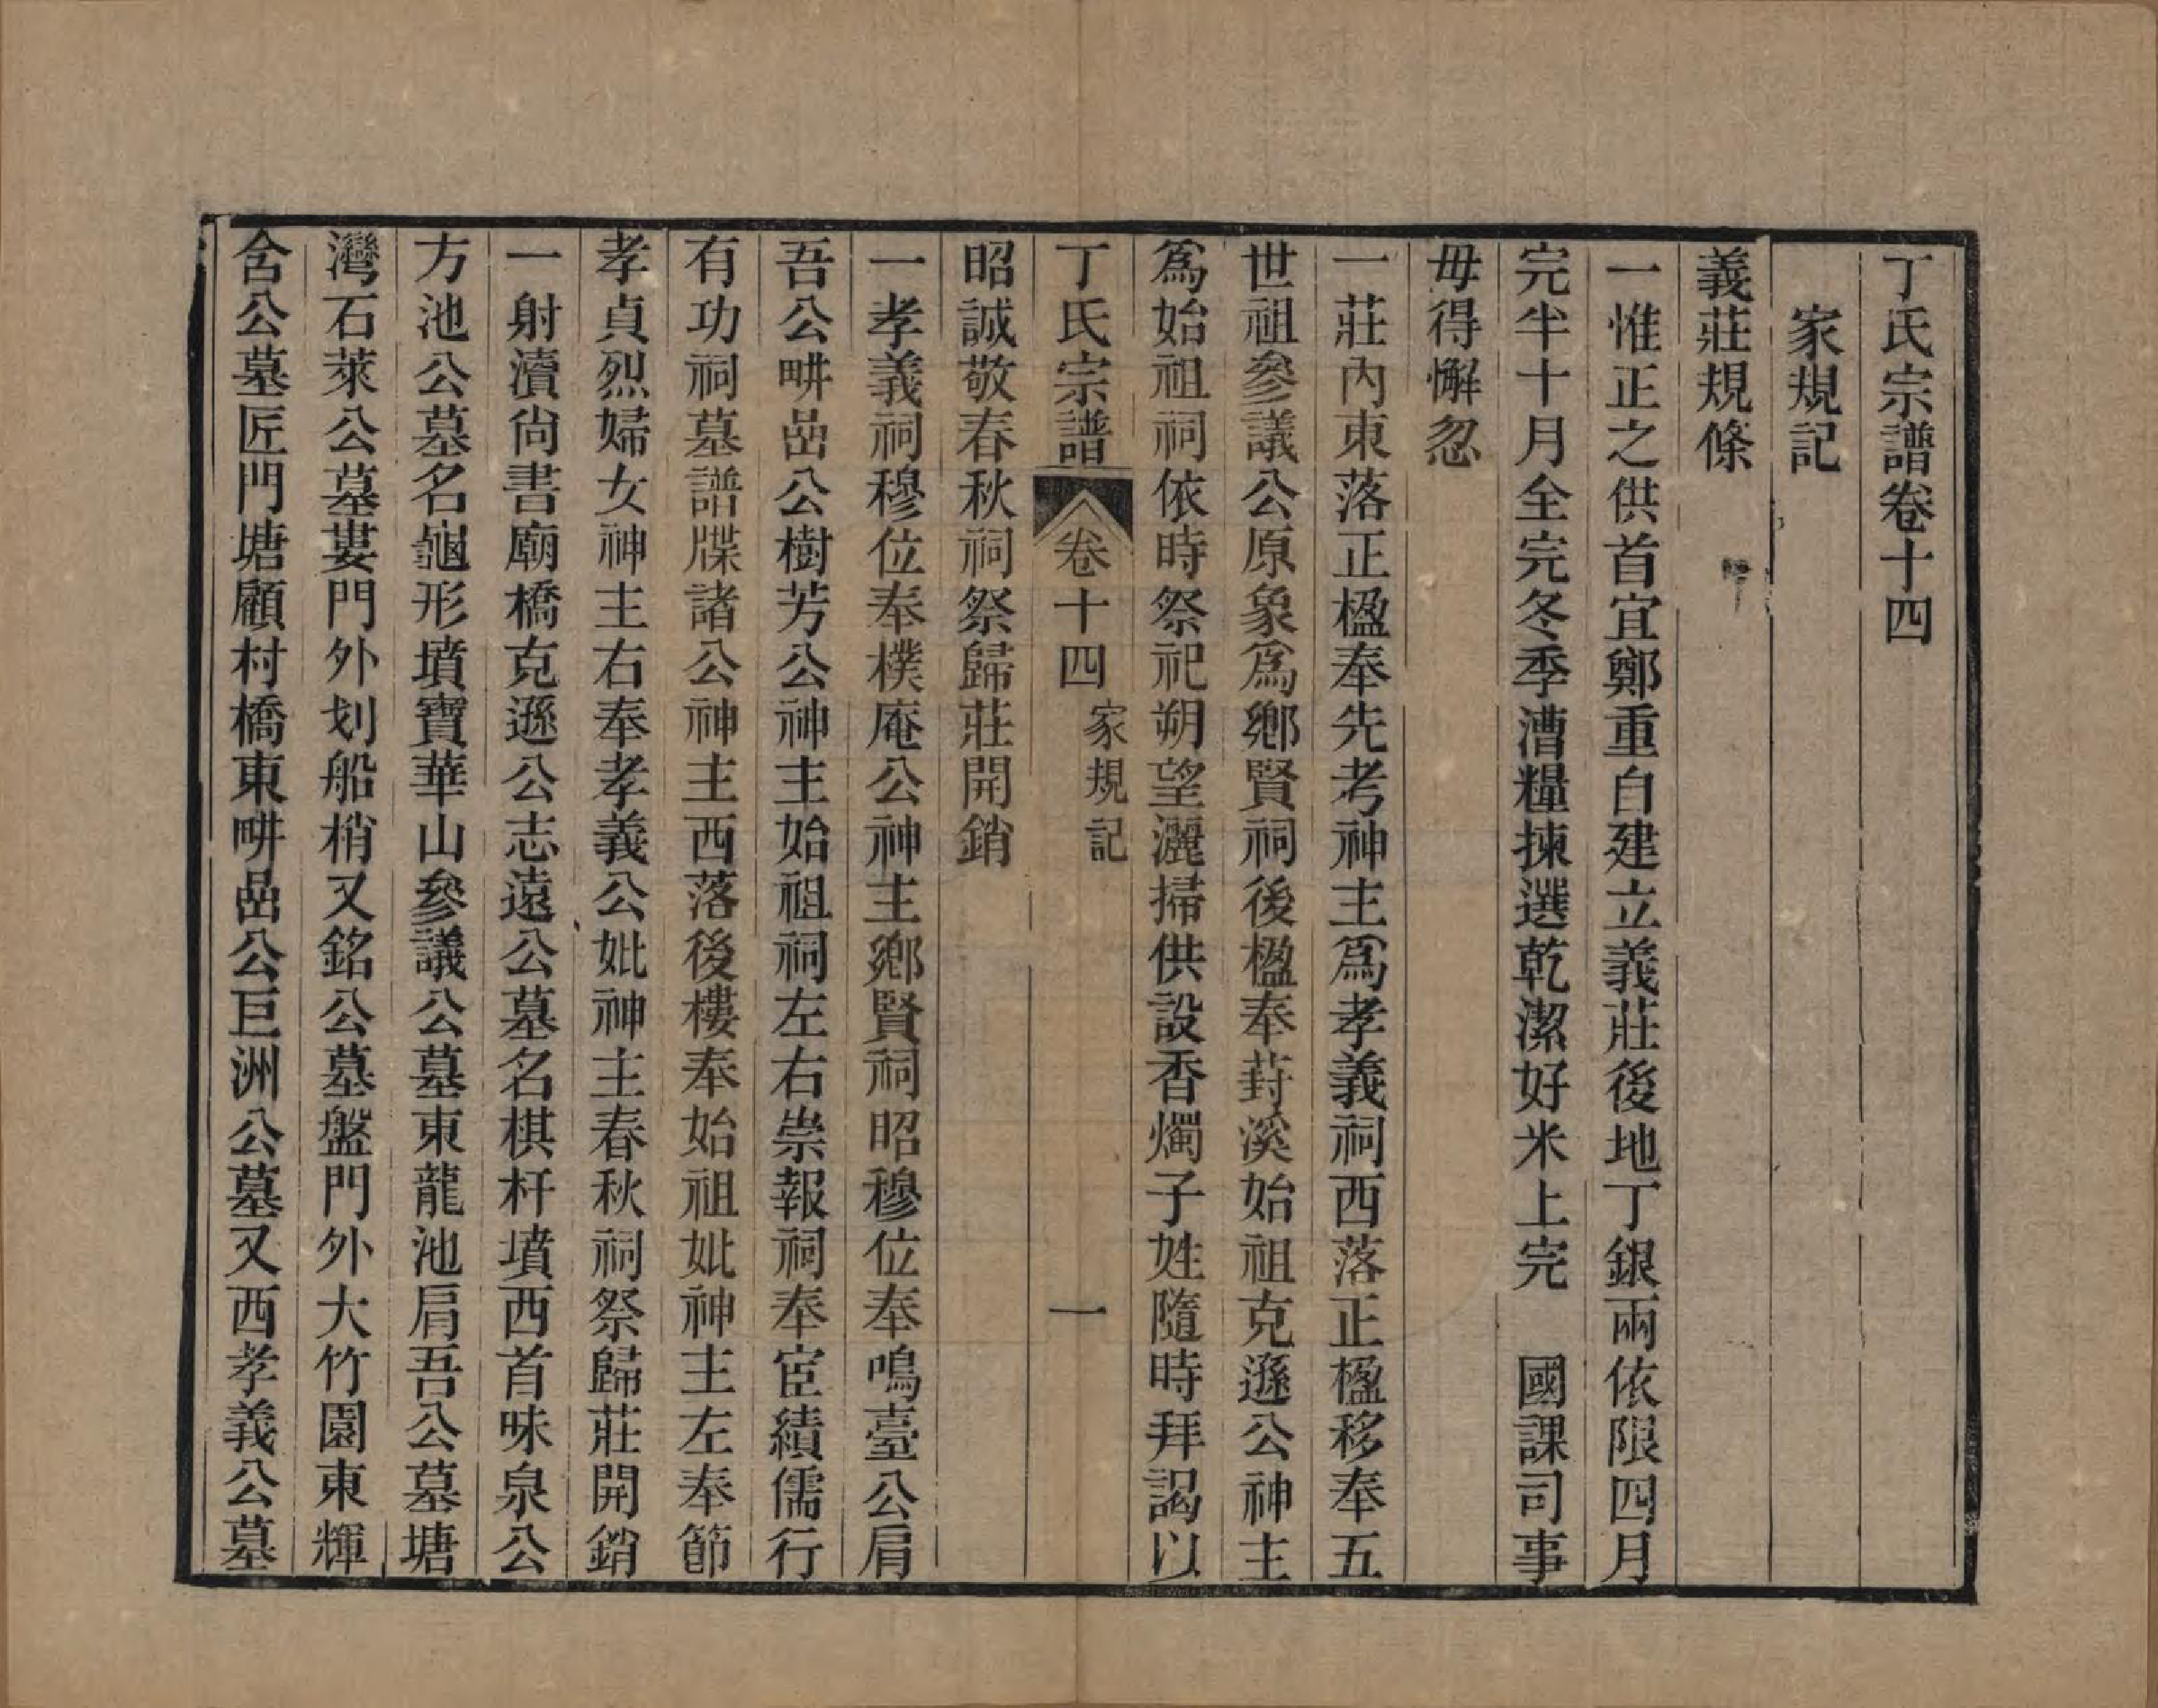 丁氏宗譜卷十四
家規記
義莊規條
一惟正之供首宜鄭重自建立義莊後地丁銀兩依限四月
完半十月全完冬季漕糧揀選乾潔好米上完　國課司事
毋得懈忽
一莊內東落正楹奉先考神主爲孝義祠西落正楹移奉五
世祖參議公原象爲鄉賢祠後楹奉葑溪始祖克遜公神主
爲始祖祠依時祭祀朔望灑掃供設香燭子姓隨時拜謁以
丁氏宗譜　卷十四　家規記　一
昭誠敬春秋祠祭歸莊開銷
一孝義祠穆位奉樸庵公神主鄉賢祠昭穆位奉鳴臺公肩
吾公畊嵒公樹芳公神主始祖祠左右崇報祠奉宦績儒行
有功祠墓譜牒諸公神主西落後樓奉始祖妣神主左奉節
孝貞烈婦女神主右奉孝義公妣神主春秋祠祭歸莊開銷
一射瀆尙書廟橋克遜公志遠公墓名棋杆墳西首味泉公
方池公墓名龜形墳寶華山參議公墓東龍池肩吾公墓塘
灣石萊公墓婁門外划船梢又銘公墓盤門外大竹園東輝
含公墓匠門塘顧村橋東畊嵒公巨洲公墓又西孝義公墓